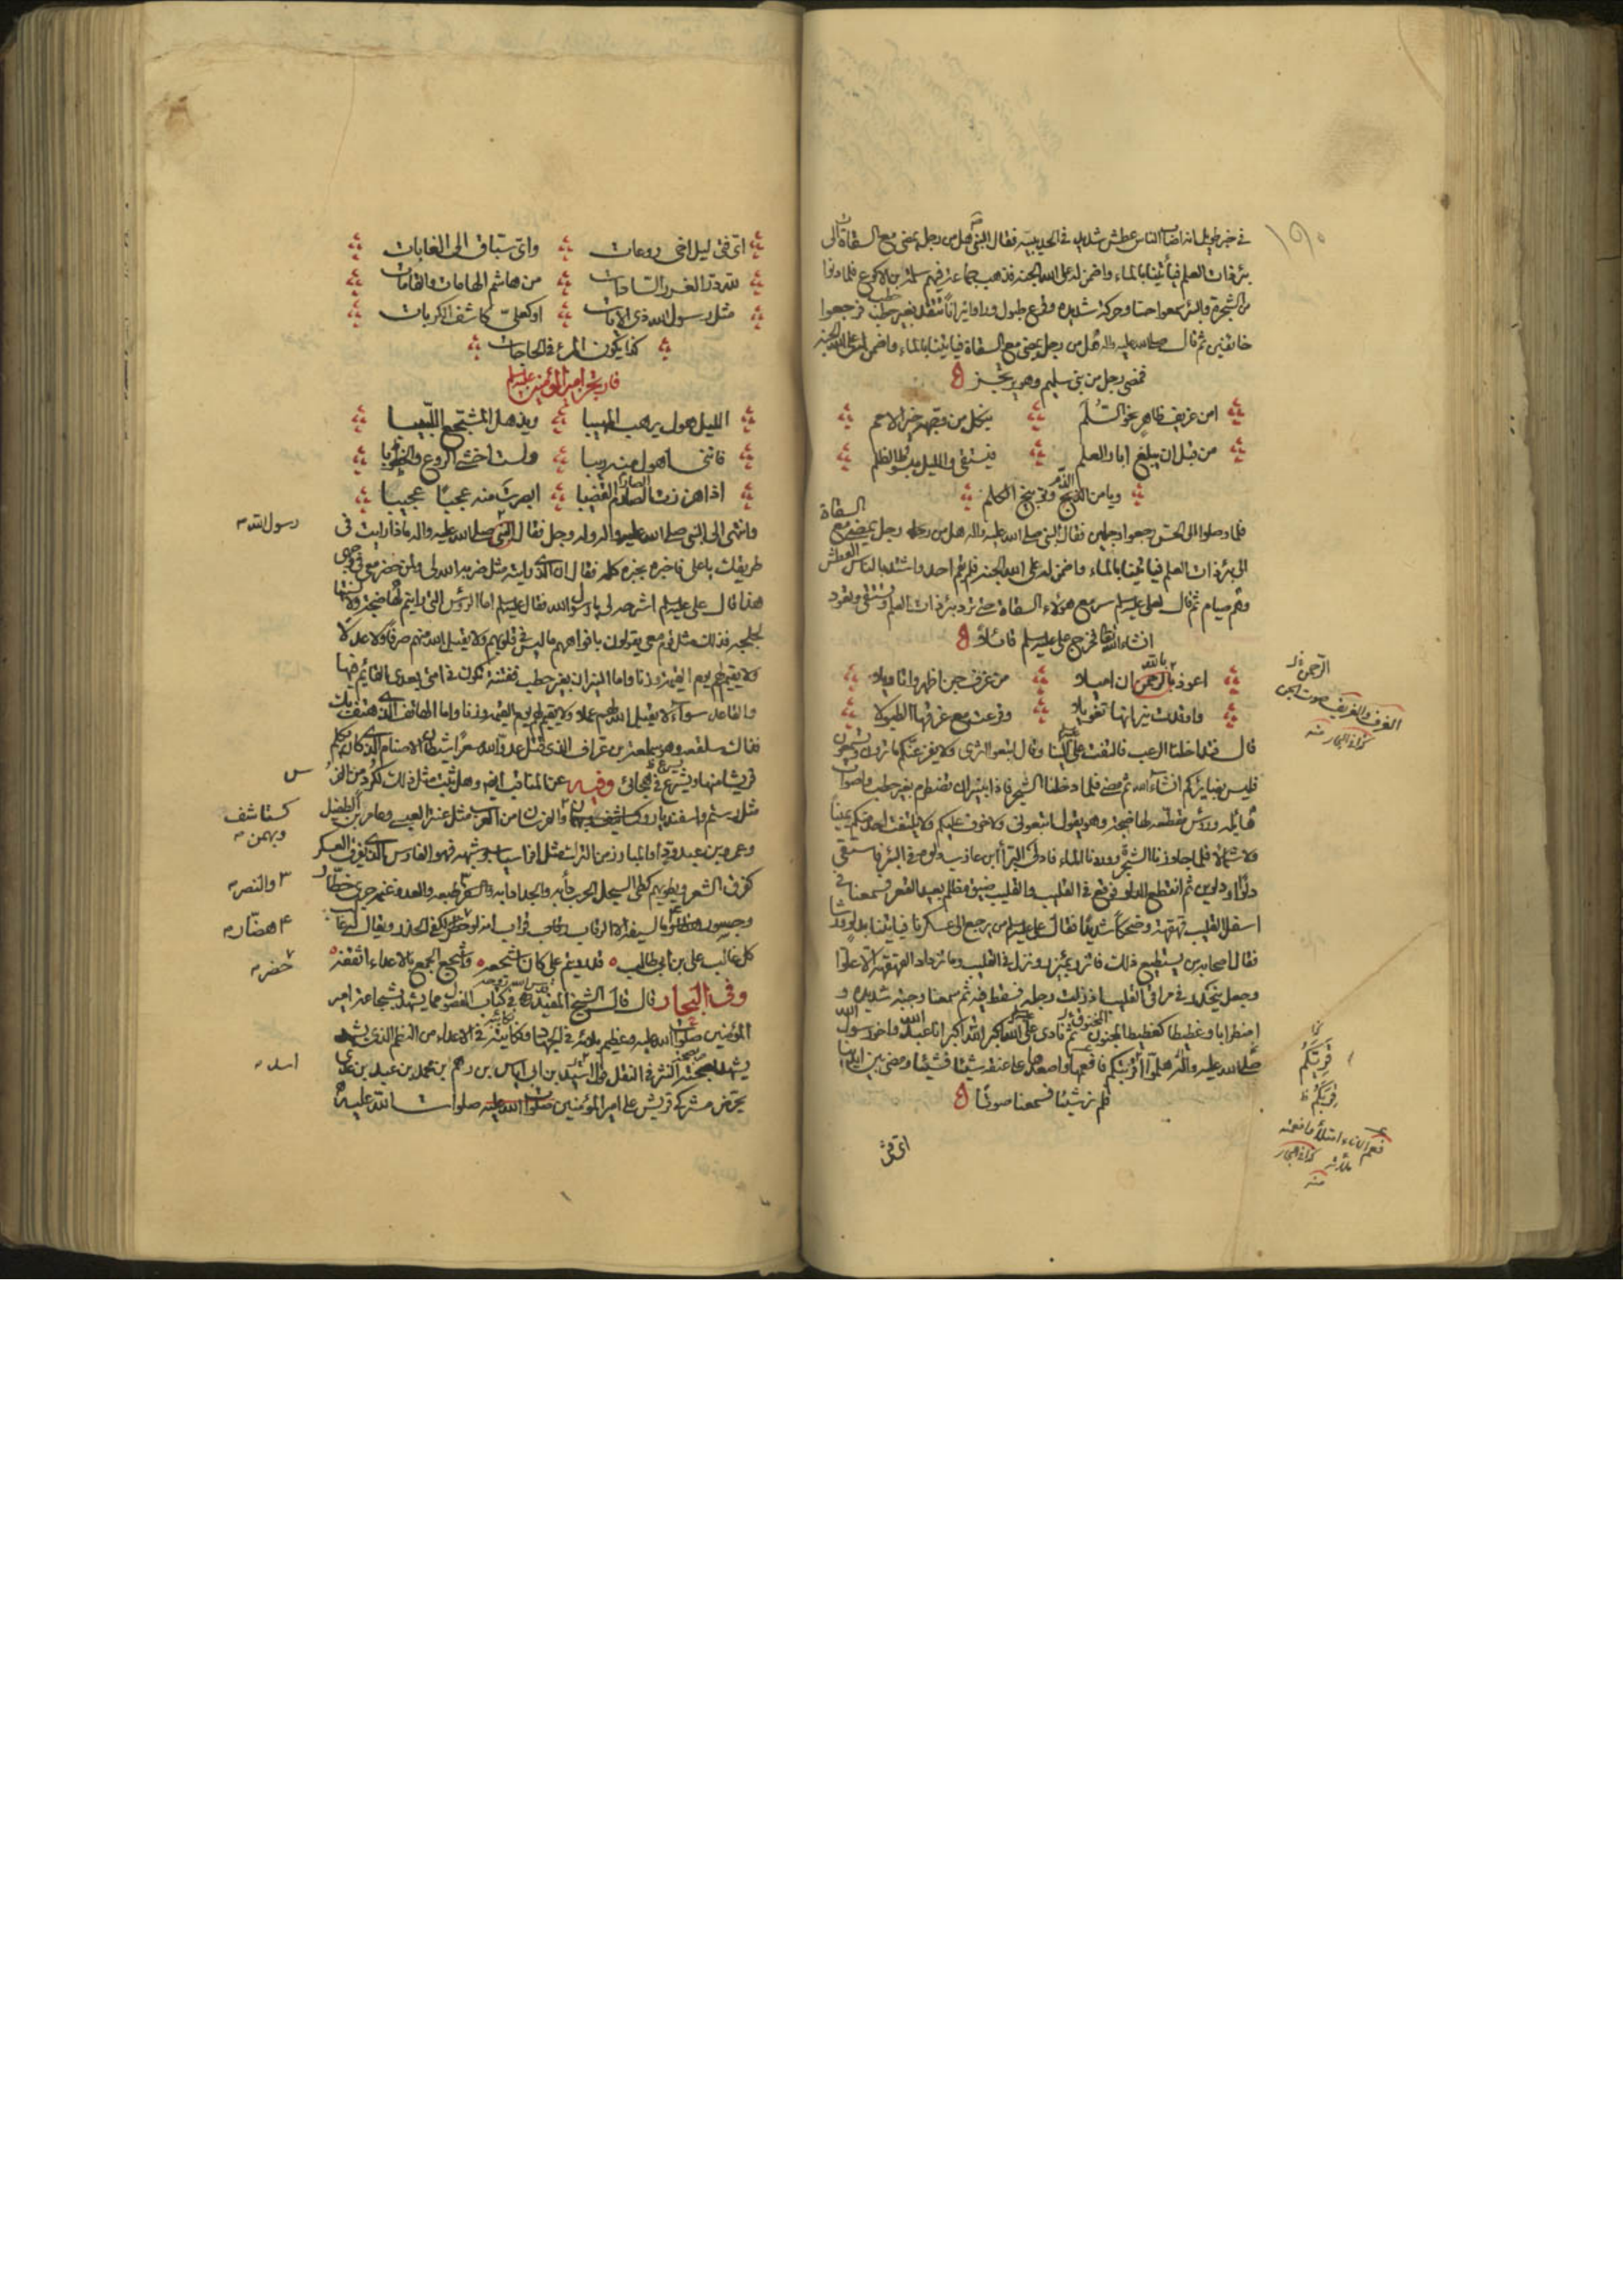 في خبر طويل انه اصاب الناس عطش شديد في الحديبية فقال النبي هل من رجل يمضي مع السقاة الى
بئر ذات العلم فيأتينا بالماء واضمن له على الله الجنة فذهب جماعة فيهم سلمة بن الاكوع فلما دنوا
من الشجرة والبئر سمعوا حسا وحركة شديدة وقرع طبول وراوا نيرانا تتقد بغير حطب فرجعوا
خائفين ثم قال صلى الله عليه واله هل من رجل يمضي مع السقاة فيأتينا بالماء واضمن له على الله الجنة
فمضى رجل من بني سليم وهو يرتجز
امن عزيف ظاهر نحو السلم
ينكل من وجهه خير الامم
من قبل ان يبلغ ابار العلم
فيستقي والليل مبسوط الظلم
ويامن الذم وتوبيخ الكلم
فلما وصلوا الى الحس رجعوا وجلين فقال النبي صلى الله عليه واله هل من رجل يمضي مع السقاة
الى بئر ذات العلم فيأتينا بالماء واضمن له على الله الجنة فلم يقم احد واشتد بالناس العطش
وهم صيام ثم قال لعلي عليه السلام سر مع هؤلاء السقاة حتى ترد بئر ذات العلم وتستقي وتعود
انشاء الله تعالى فخرج علي عليه السلام قائلا
اعوذ بالرحمن ان اميلا
من عزف جن اظهروا تاويلا
واوقدت نيرانها تغويلا
وقرعت مع عزفها الطبولا
قال فداخلنا الرعب فالتفت علي الينا وقال اتبعوا اثري ولا يفزعنكم ما ترون وتسمعون
فليس بضائركم انشاء الله ثم مضى فلما دخلنا الشجر فاذا بنيران تضطرم بغير حطب واصوات
هائلة ورؤس مقطعة لها ضجة وهو يقول اتبعوني ولا خوف عليكم ولا يلتفت احد منكم يمينا
ولا شمالا فلما جاوزنا الشجرة ووردنا الماء فادلى البرآء ابن عازب دلوه في البئر فاستقى
دلوا او دلوين ثم انقطع الدلو فوقع في القليب والقليب ضيق مظلم بعيد القعر فسمعنا في
اسفل القليب قهقهة وضحكا شديدا فقال علي عليه السلام من يرجع الى عسكرنا فياتينا بدلو ورشا
فقال اصحابه من يستطيع ذلك فائتزر بمئزر ونزل في القليب وما تزداد القهقهة الا علوا
وجعل ينحدر في مراقي القليب اذ زلت رجله فسقط فيه ثم سمعنا وجبة شديدة و
اضطرابا وغطيطا كغطيط المخنوق ثم نادى علي الله اكبر الله اكبر انا عبد الله واخو رسول الله
صلى الله عليه واله هلموا قربكم فافعمها واصعدها على عنقه شيئا فشيئا ومضى بين ايدينا
فلم نر شيئا فسمعنا صوتا
اي فتى
الرحمن
العزف والعزيف صوت الجن
كذا في البحار منه
قربكم
فعم الاناء امتلأ وافعمته
ملأته كذا في البحار
منه
اي فتى ليل اخي روعات
واي سباق الى الغايات
لله در الغرر السادات
من هاشم الهامات والقامات
مثل رسول الله ذي الايات
او كعلي كاشف الكربات
كذا يكون المرء في الحاجات
فارتجز امير المؤمنين عليه السلام
الليل هول يرهب المهيبا
ويذهل المشجع اللبيبا
فانني اهول منه ريبا
ولست اخشى الروع والخطوبا
اذا هززت الصارم القضيبا
ابصرت منه عجبا عجيبا
وانتهى الى النبي صلى الله عليه واله وله زجل فقال النبي صلى الله عليه واله ماذا رايت في
طريقك يا علي فاخبره بخبره كله فقال ان الذي رايته مثل ضربه الله لي ولمن حضر معي في وجهي
هذا قال علي عليه السلام اشرحه لي يا رسول الله فقال عليه السلام اما الرؤس التي رايتم لها ضجة ولالسنتها
لجلجة فذلك مثل قوم معي يقولون بافواههم ما ليس في قلوبهم ولا يقبل الله منهم صرفا ولا عدلا
ولا يقيم لهم يوم القيمة وزنا واما النيران بغير حطب ففتنة تكون في امتي بعدي القائم فيها
والقاعد سوآء لا يقبل الله لهم عملا ولا يقيم لهم يوم القيمة وزنا واما الهاتف الذي هتف بك
فذاك سلقعة وهو سملعة بن عزاف الذي قتل عدو الله مسعرا شيطان الاصنام الذي كان يكلم
قريشا منها ويشرع في هجائي وفيه عن المناقب ايضا وهل ثبت مثل ذلك لكرد من الفرس
مثل رستم واسفنديار وكستاشف وبهمن والفرسان من العرب مثل عنتر العبسي وعامر بن الطفيل
وعمرو بن عبد ود والمبارز من الترك مثل افراسياب وشبهه فهو الفارس الذي يفرق العسكر
كفرق الشعر ويطويهم كطي السجل الحرب دأبه والجد ادابه والنصر طبعه والعدو غنمه جرى خطار
كل غالب علي بن ابي طالب قد رويتم علي كان اشجعهم واشجع الجمع بالاعداء اثقفه
وفي البحار قال قال الشيخ المفيد في كتاب الفصول مما يشهد بشجاعة امير
المؤمنين صلوات الله عليه وعظيم بلائه في الجهاد ونكايته في الاعداء من النظم الذي يشهد
بصحته النثر في النقل قول اسيد بن ابي اياس بن زهم بن محمد بن عبد بن عدي
يحرض مشركي قريش على امير المؤمنين صلوات الله عليه
رسول الله
كستاشف
وبهمن
والنصر
هصار
حضر
اسد